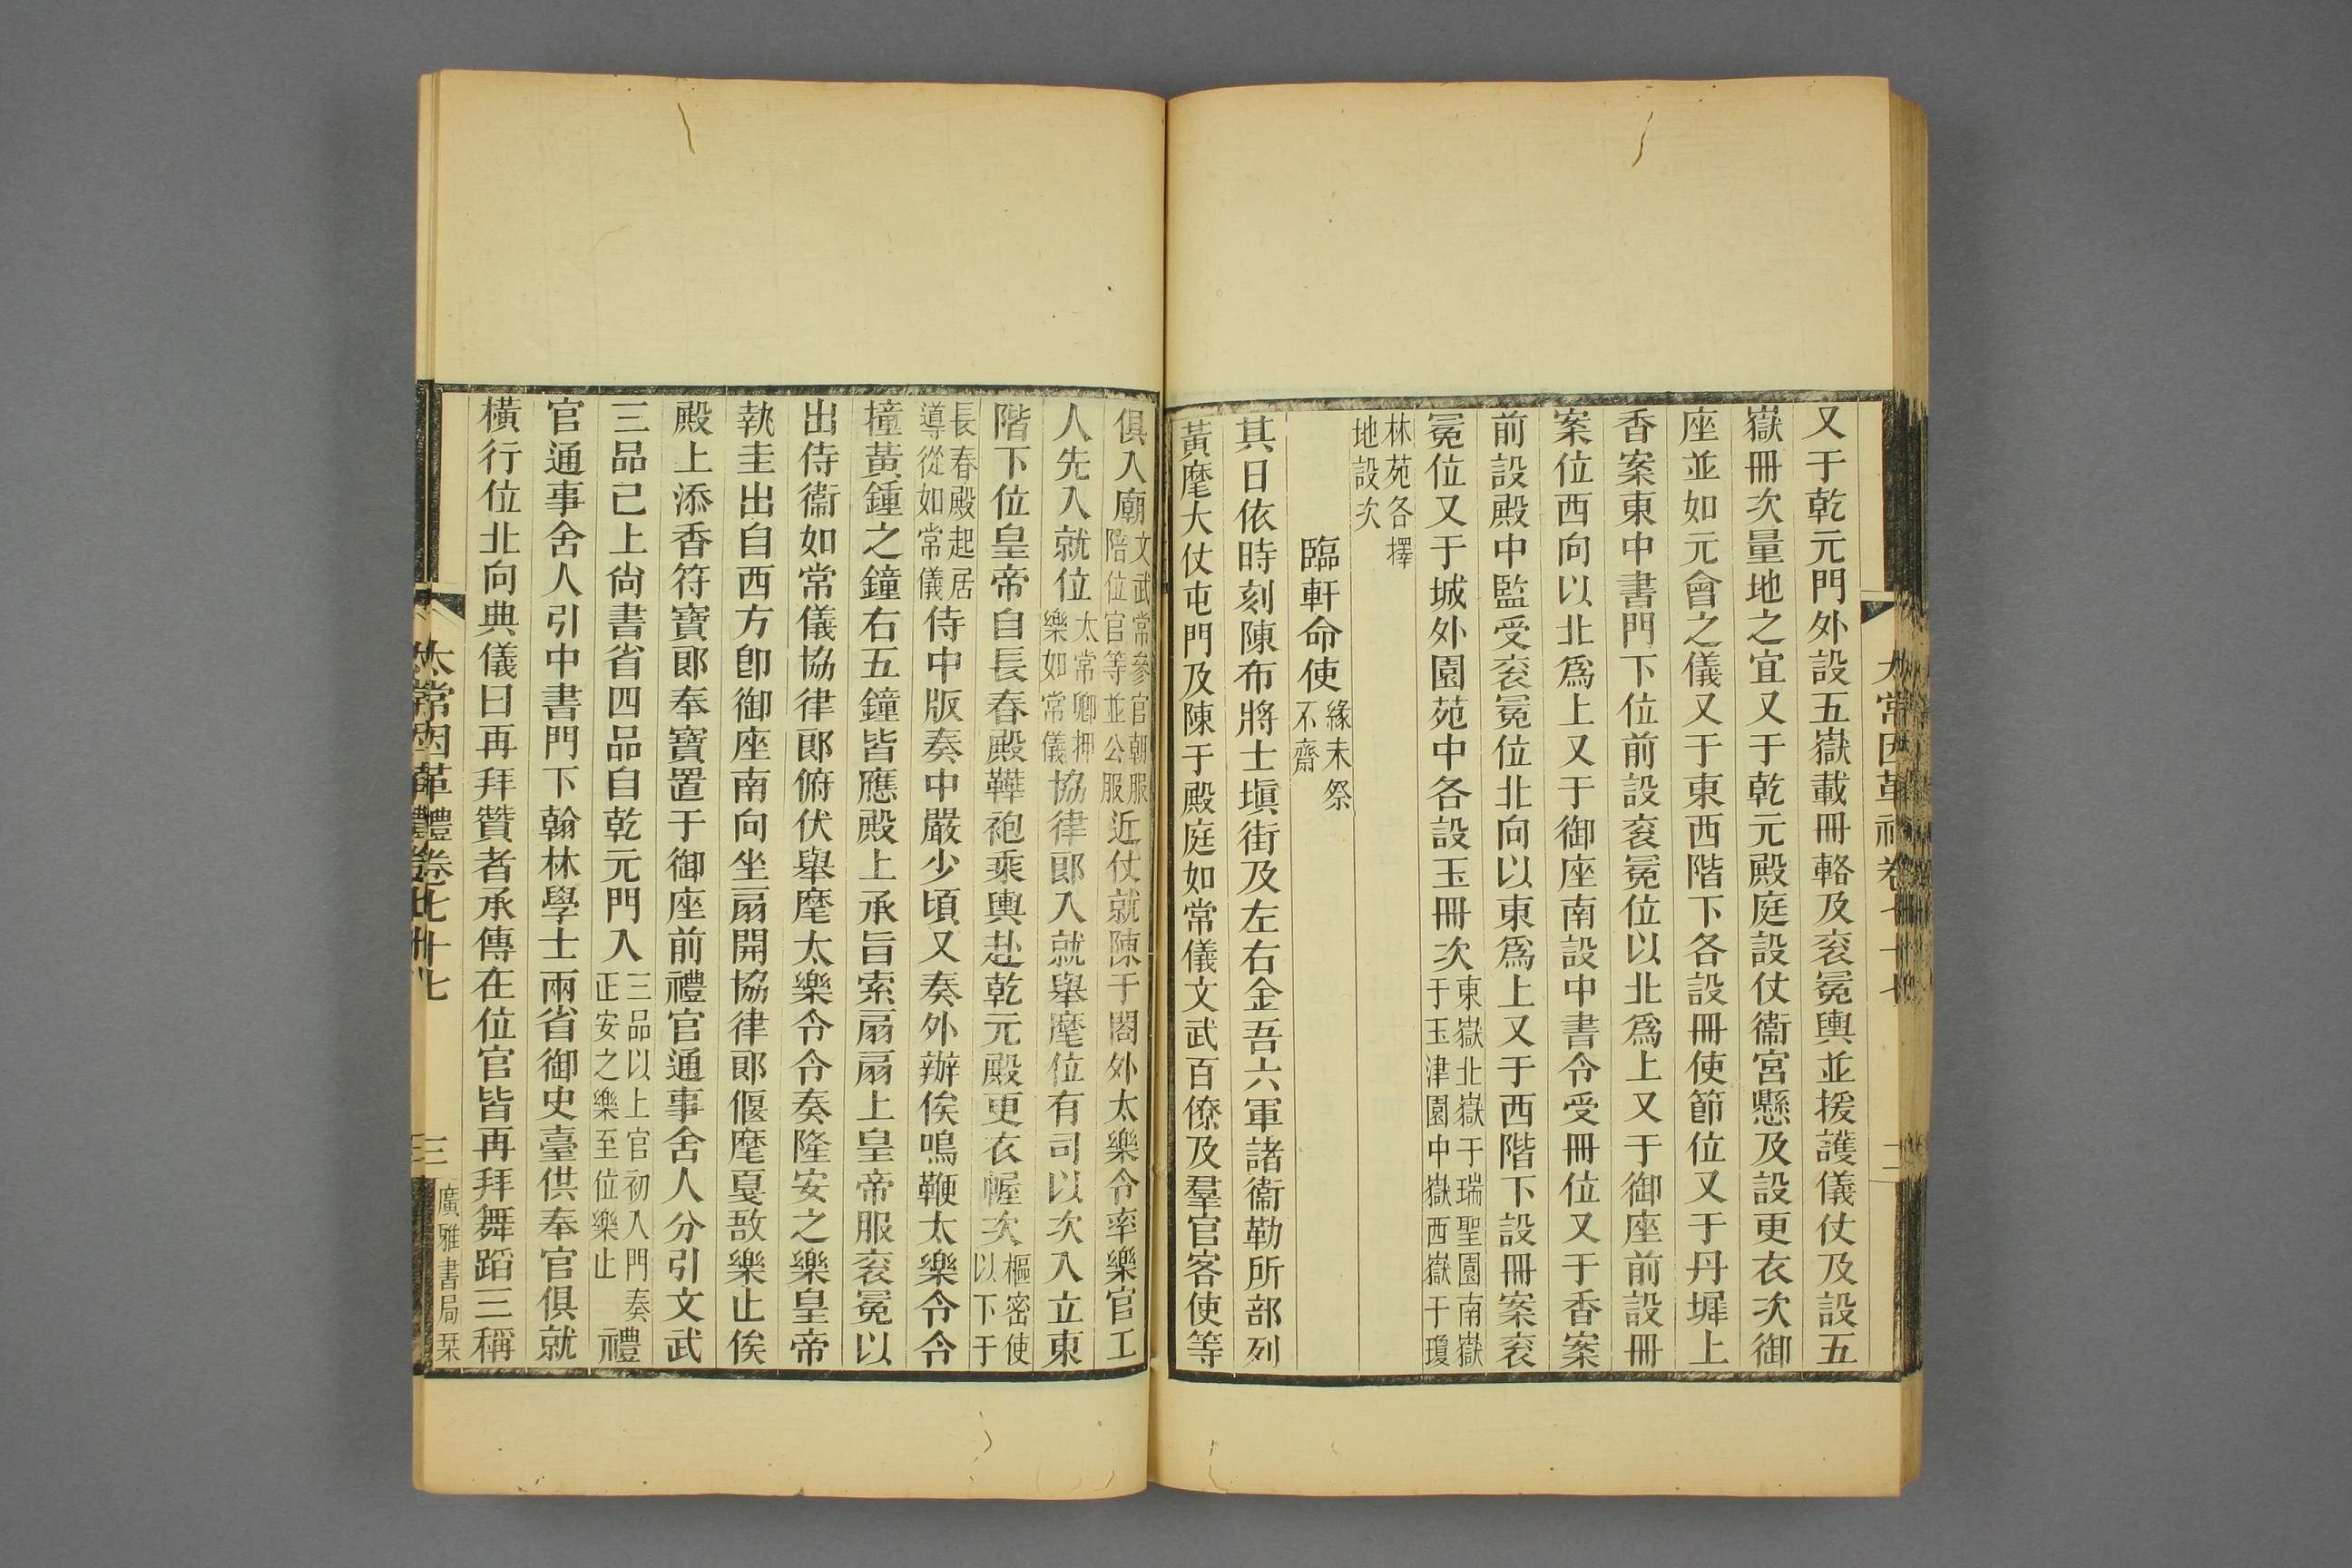 太常因革禮卷七十七
二
又于乾元門外設五嶽載冊輅及衮冕輿並援護儀仗及設五
嶽冊次量地之宜又于乾元殿庭設仗衞宮懸及設更衣次御
座並如元會之儀又于東西階下各設冊使節位又于丹墀上
香案東中書門下位前設衮冕位以北爲上又于御座前設冊
案位西向以北爲上又于御座南設中書令受冊位又于香案
前設殿中監受衮冕位北向以東爲上又于西階下設冊案衮
冕位又于城外園苑中各設玉冊次東嶽北嶽于瑞聖園南嶽于玉津園中嶽西嶽于瓊
林苑各擇地設次
臨軒命使緣未祭不齋
其日依時刻陳布將士塡街及左右金吾六軍諸衞勒所部列
黃麾大仗屯門及陳于殿庭如常儀文武百僚及羣官客使等
俱入廟文武常參官朝服陪位官等並公服近仗就陳于閤外太樂令率樂官工
人先入就位太常卿押樂如常儀協律郎入就舉麾位有司以次入立東
階下位皇帝自長春殿鞾袍乘輿赴乾元殿更衣幄次樞密使以下于
長春殿起居導從如常儀侍中版奏中嚴少頃又奏外辦俟鳴鞭太樂令令
撞黃鍾之鐘右五鐘皆應殿上承旨索扇扇上皇帝服衮冕以
出侍衞如常儀協律郎俯伏舉麾太樂令令奏隆安之樂皇帝
執圭出自西方卽御座南向坐扇開協律郎偃麾戛敔樂止俟
殿上添香符寶郎奉寶置于御座前禮官通事舍人分引文武
三品已上尙書省四品自乾元門入三品以上官初入門奏正安之樂至位樂止禮
官通事舍人引中書門下翰林學士兩省御史臺供奉官俱就
橫行位北向典儀曰再拜贊者承傳在位官皆再拜舞蹈三稱
太常因革禮卷七十七
三
廣雅書局栞